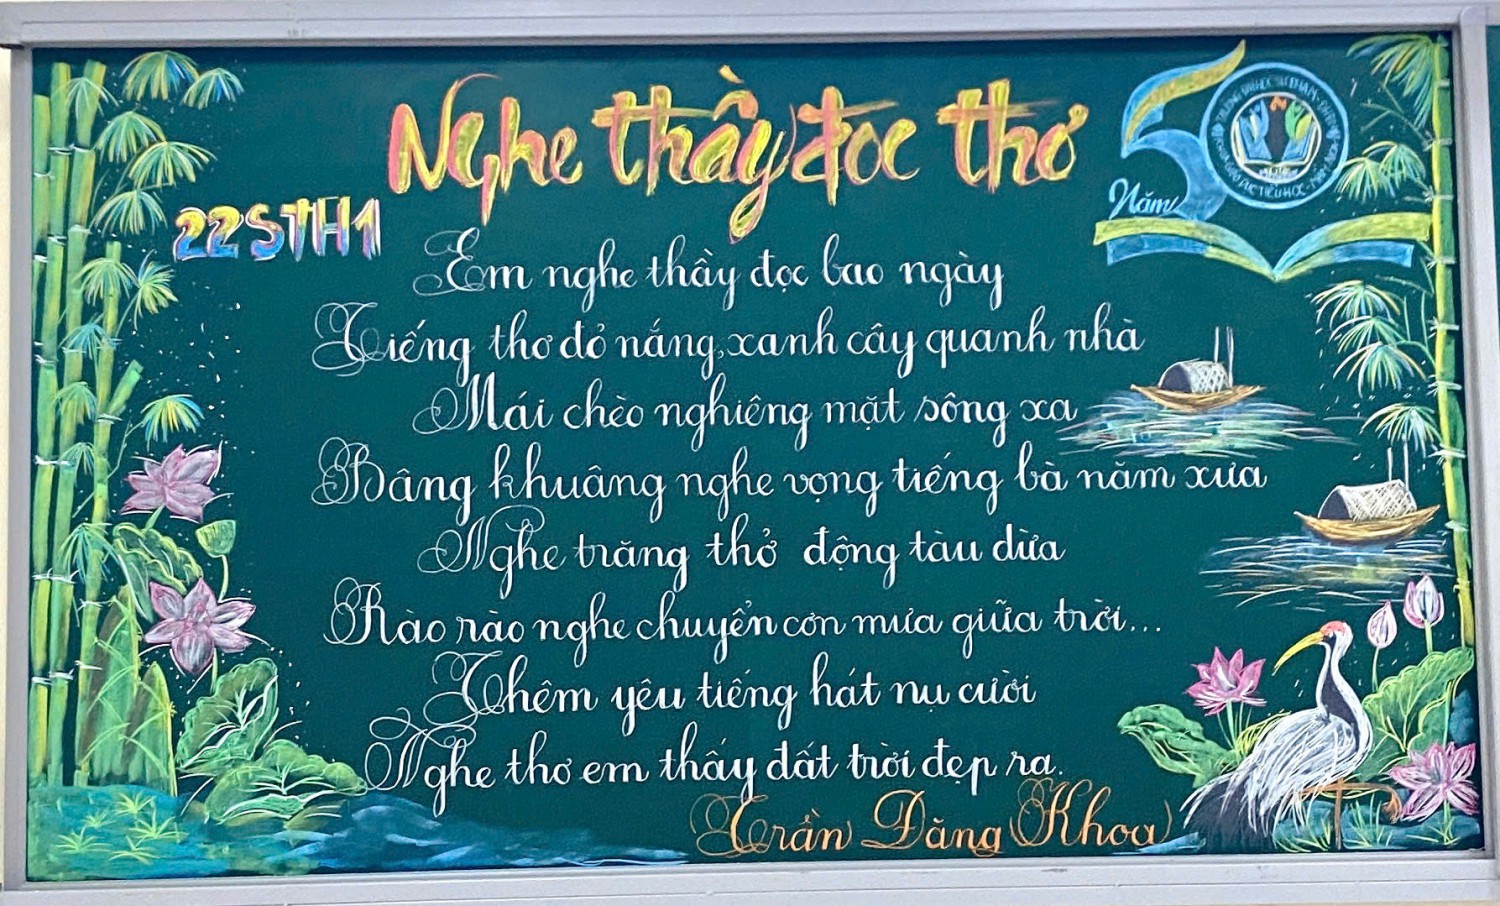 Nghe thầy đọc thơ
22STH1
Năm
50
TRƯỜNG ĐẠI HỌC SƯ PHẠM
KHOA GIÁO DỤC TIỂU HỌC - MẦM NON
Em nghe thầy đọc bao ngày
Tiếng thơ đỏ nắng, xanh cây quanh nhà
Mái chèo nghiêng mặt sông xa
Bâng khuâng nghe vọng tiếng bà năm xưa
Nghe trăng thở động tàu dừa
Rào rào nghe chuyển cơn mưa giữa trời...
Thêm yêu tiếng hát nụ cười
Nghe thơ em thấy đất trời đẹp ra.
Trần Đăng Khoa